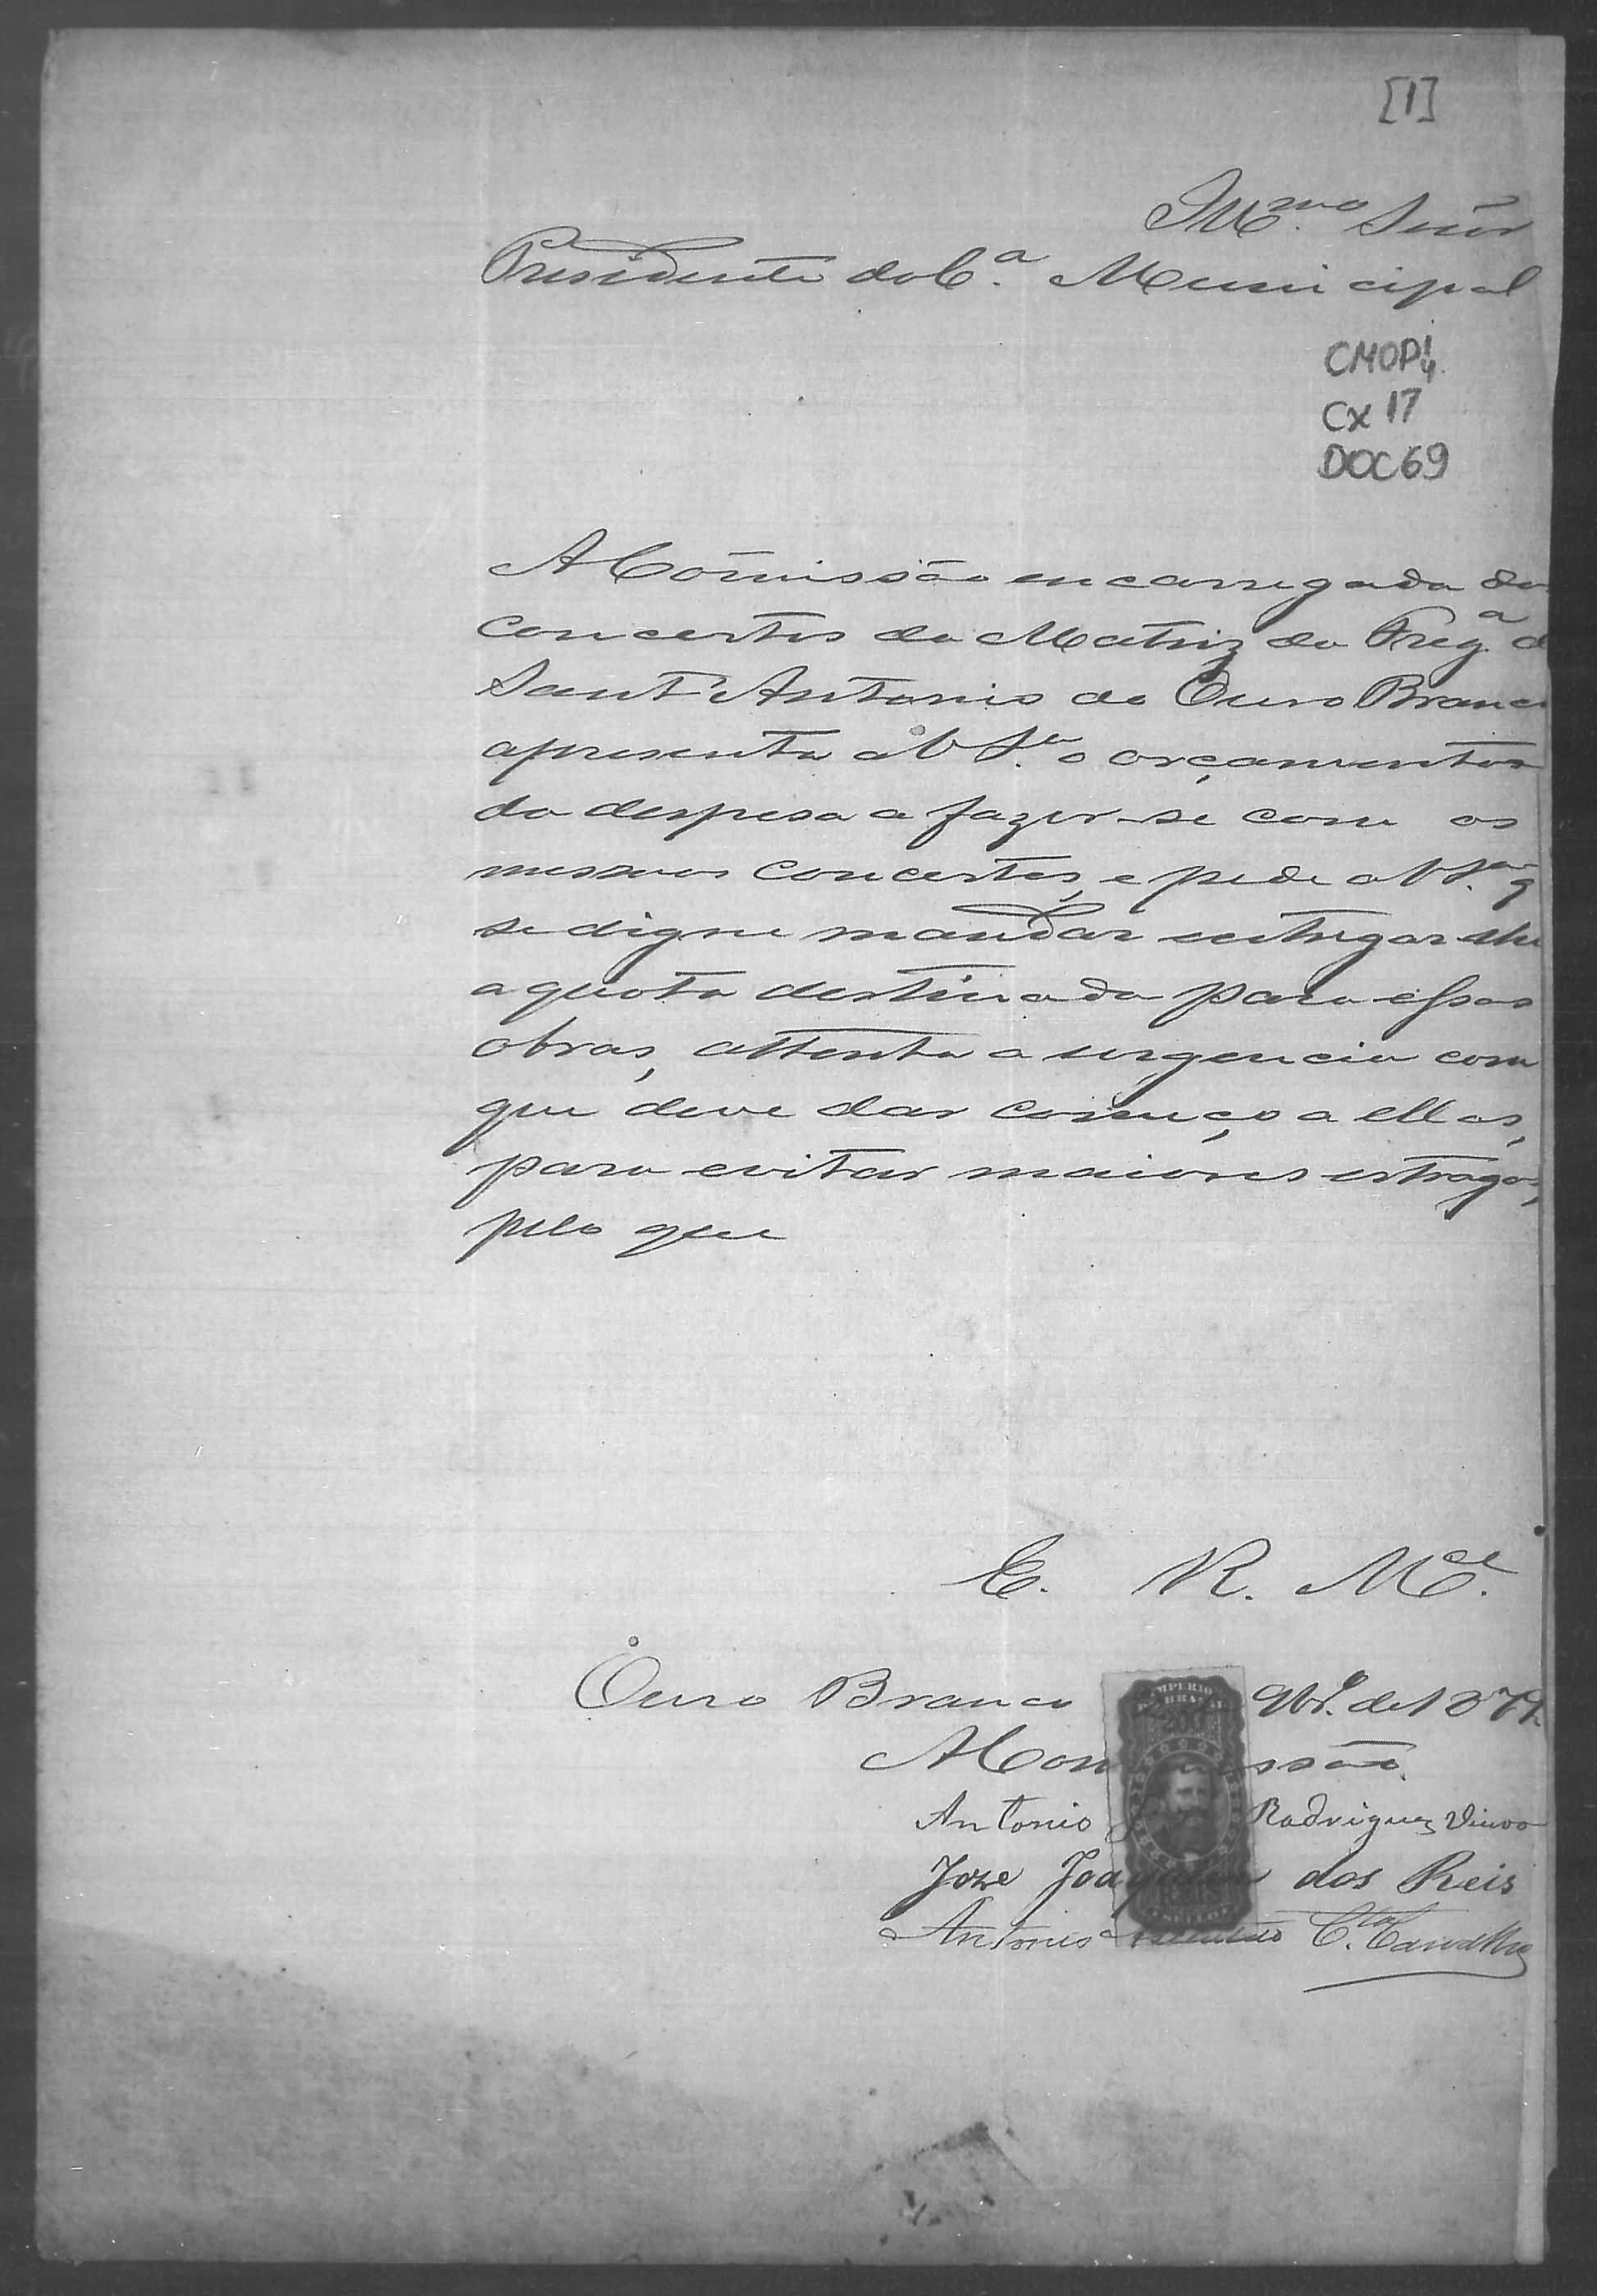 [1]
Illmo. Snör
Presidente da Cª. Municipal
CMOP
Cx 17
DOC 69
A Com̃issão encarregada do
concertos da Matriz da Fregª d
Sant'Antonio do Ouro Branco
apresenta a V Sª. o orçamento
da despesa a fazer-se com os
mesmos concertos, e pede a V Sª. q
se digne mandar entregar-lhe
a quota destinada para essas
obras, attenta a urgencia com
que deve dar começo a ellas,
para evitar maiores estragos,
pelo que
E. R. Mcê.
Ouro Branco 9br.º de 187
A Commissão
Antonio Rodrigues
Joze Joaquim dos Reis
Antonio C.ta Carvalho
IMPERIO
DO BRASIL
200
REIS